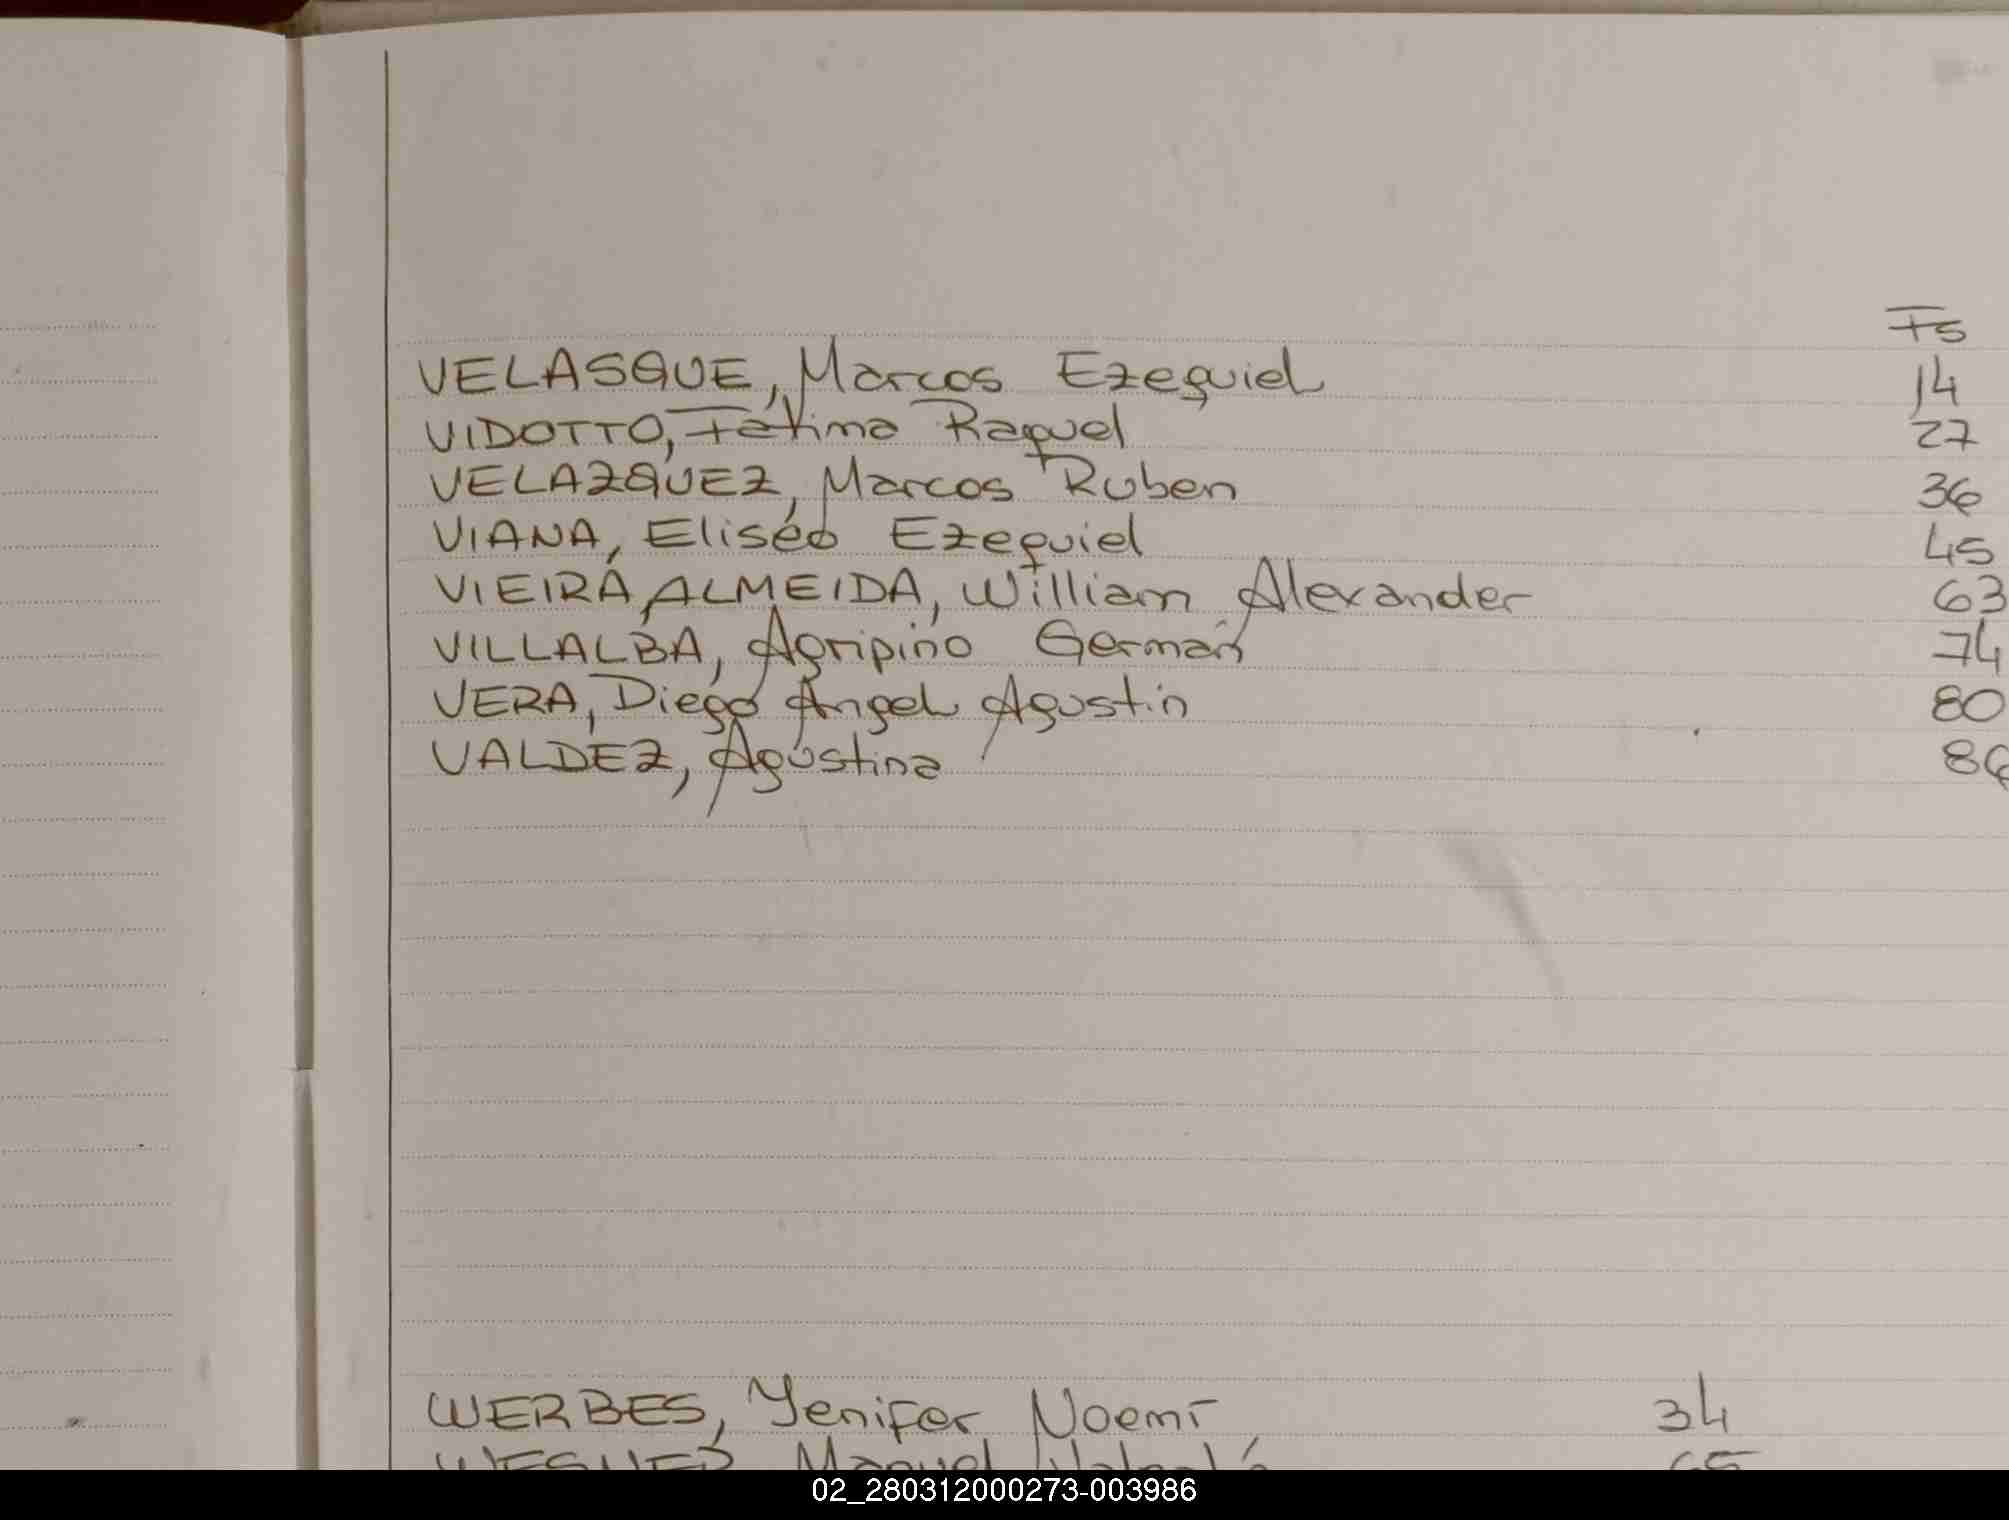 Fs
VELASQUE, Marcos Ezequiel 14
VIDOTTO, Fátima Raquel 27
VELAZQUEZ, Marcos Ruben 36
VIANA, Eliséo Ezequiel 45
VIEIRA ALMEIDA, William Alexander 63
VILLALBA, Agripino Germán 74
VERA, Diego Angel Agustin 80
VALDEZ, Agustina 86
WERBES, Yenifer Noemí 34
Manuel 65
02_280312000273-003986